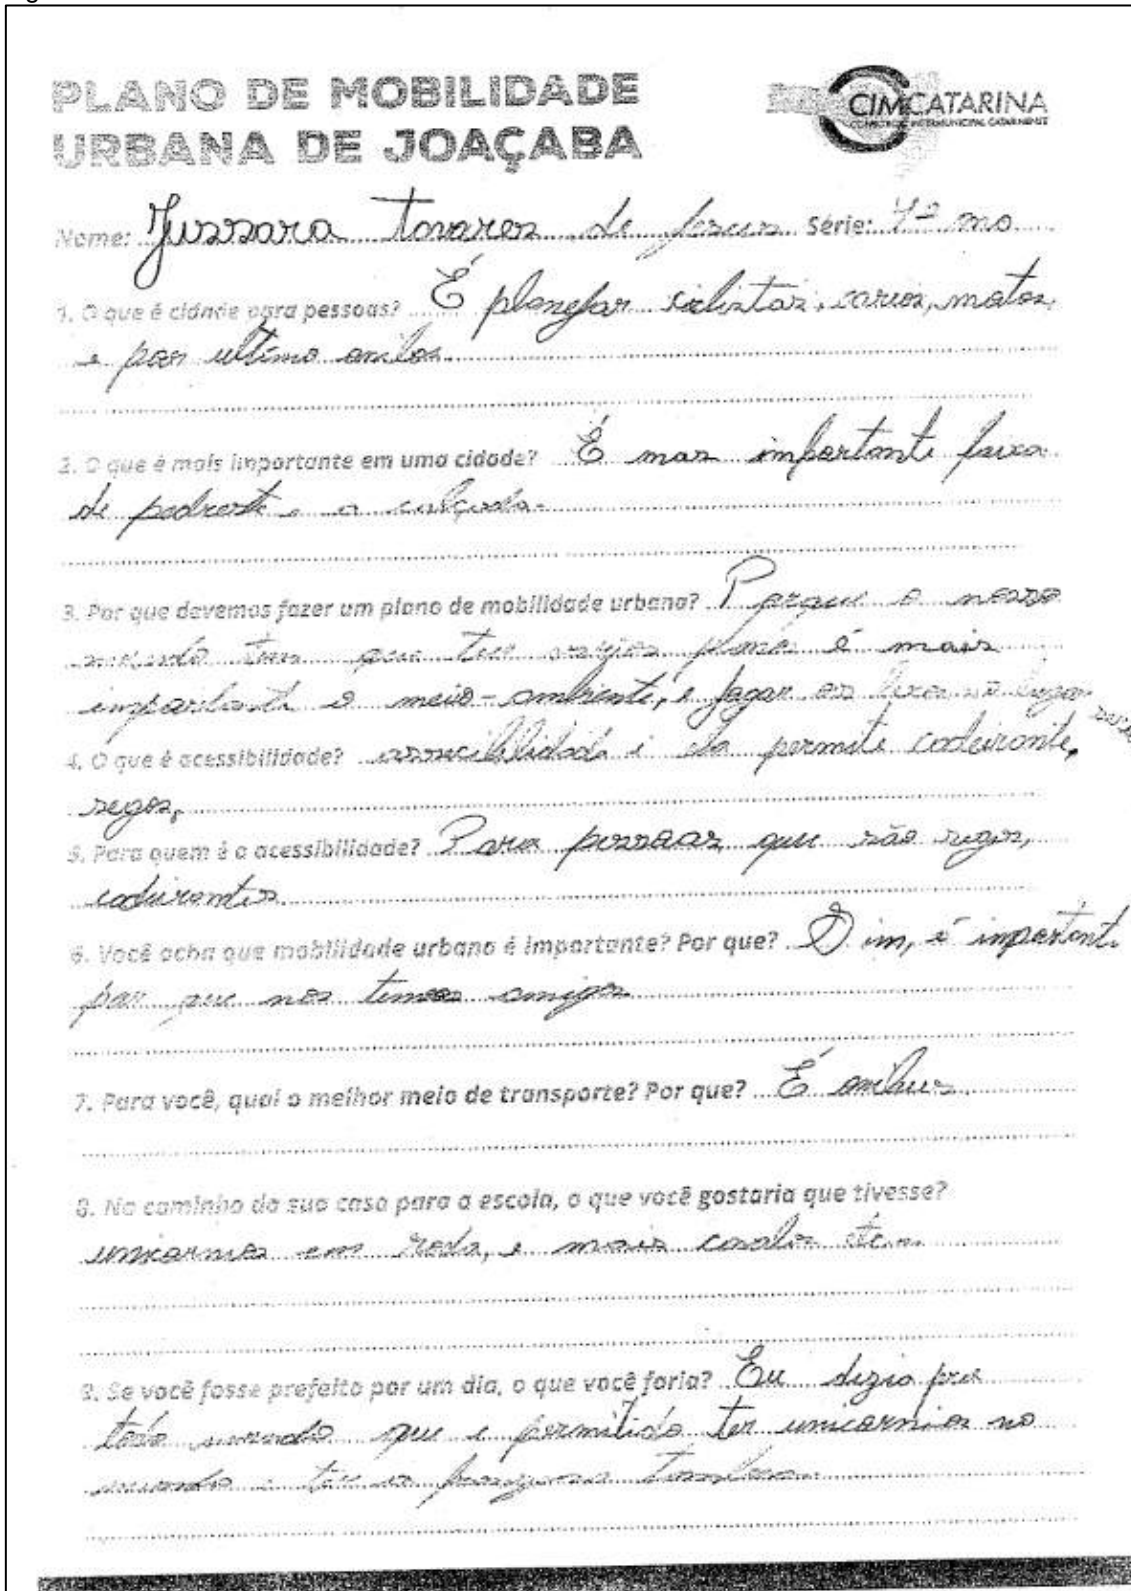 PLANO DE MOBILIDADE
URBANA DE JOAÇABA
CIMCATARINA
CONSÓRCIO INTERMUNICIPAL CATARINENSE
Nome: Jussara Tavares de Jesus Série: 4º
1. O que é cidade para pessoas? É planejar motos,
e por ultimo
2. O que é mais importante em uma cidade? É mas importante faixa
de pedreste e a calçada.
3. Por que devemos fazer um plano de mobilidade urbana? Porque o nosso
mundo tem que ter é mais
importante o meio-ambiente, e jogar os lixo no lugar
4. O que é acessibilidade? ela permite cadeirante,
segos,
5. Para quem é a acessibilidade? Para pessoas que são segos,
cadeirantes
6. Você acha que mobilidade urbana é importante? Por que? Sim, é importante
por que nos temos amigos
7. Para você, qual o melhor meio de transporte? Por que? É
8. No caminho da sua casa para a escola, o que você gostaria que tivesse?
em roda, e mais cavalos
9. Se você fosse prefeito por um dia, o que você faria? Eu dizia pra
todo mundo que é permitido ter unicornios no
mundo